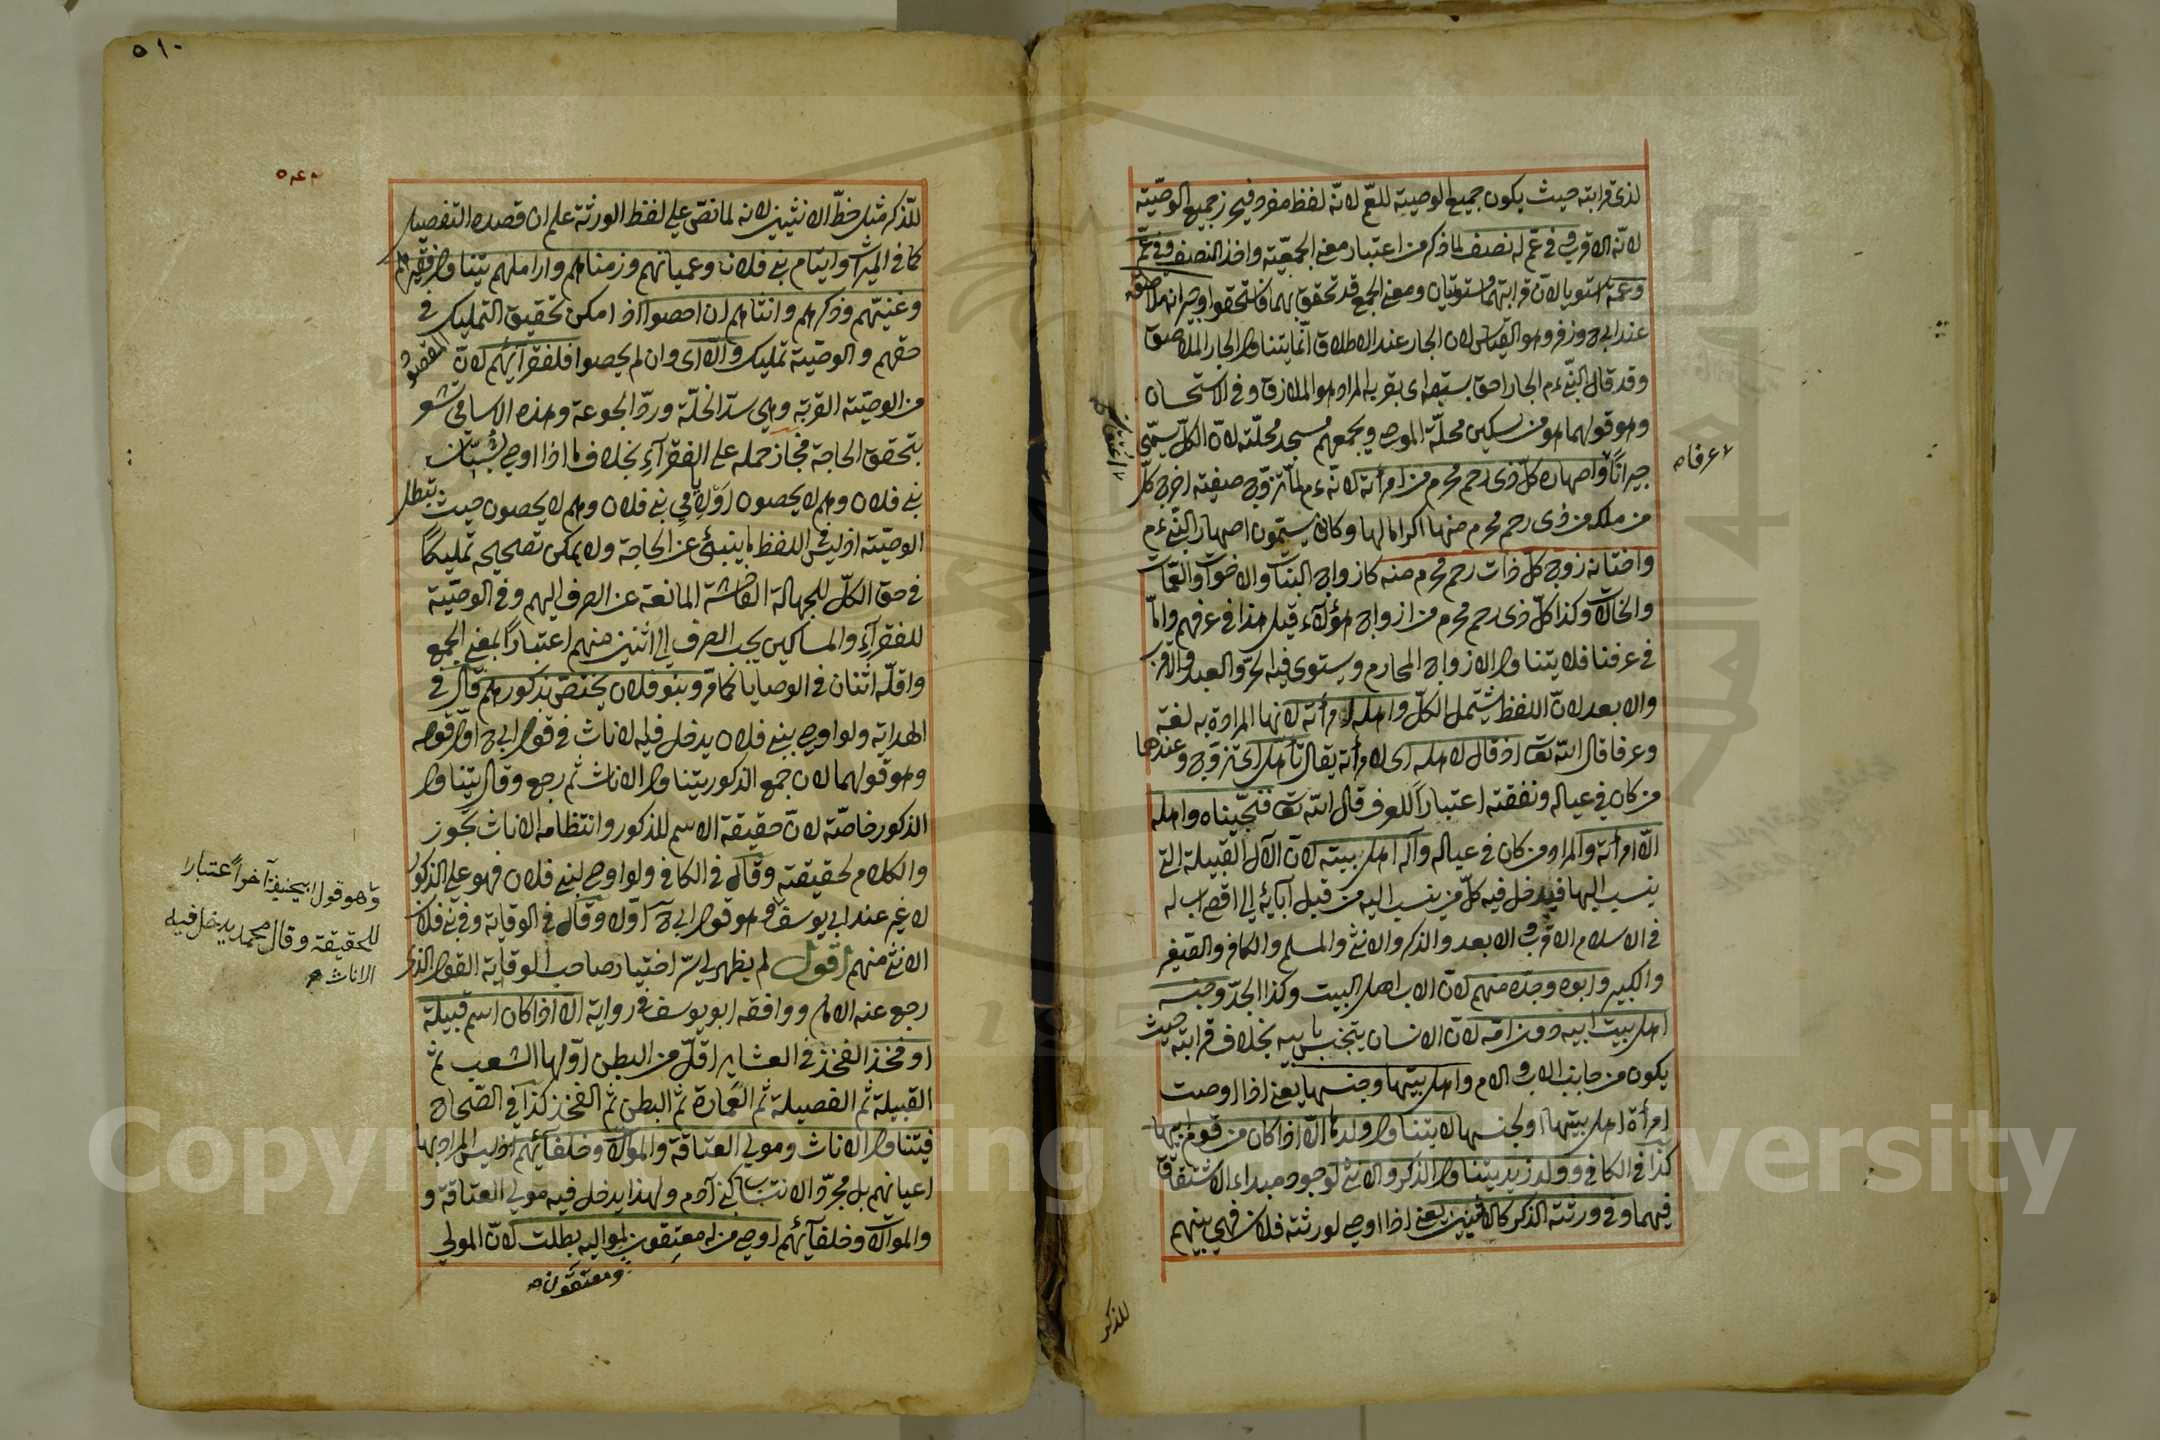 لذى قرابته حيث يكون جميع الوصية للعم لانه لفظ مفرد فيحرز جميع الوصية
لانه الاقرب وفى عم له نصف لما ذكر من اعتبار معنى الجمعية واخذ النصف وفى عم
وعمة استويا لان قرابتهما مستويان ومعنى الجمع قد تحقق بهما فاستحقوا وجيرانه ملاصقه
عند ابى ح وزفر وهو القياس لان الجار عند الاطلاق انما يتناول الجار الملاصق
وقد قال النبى ءم الجار احق بسقبه اى بقربه المراد هو الملازق وفى الاستحسان
وهو قولهما هو من يسكن محلة الموصى ويجمعهم مسجد محلته لان الكل يسمى
جيرانا واصهاره كل ذى رحم محرم من امرأته لانه ءم لما تزوج صفية اخرج كل
من ملك من ذى رحم محرم منها اكراما لها وكانوا يسمون اصهار النبى ءم
واختانه زوج كل ذات رحم محرم منه كازواج البنات والاخوات والعمات
والخالات وكذا كل ذى رحم محرم من ازواج هؤلاء قيل هذا فى عرفهم واما
فى عرفنا فلا يتناول الا ازواج المحارم ويستوى فيه الحر والعبد والاقرب
والابعد لان اللفظ يشتمل الكل واهله امرأته لانها المرادة به لغة
وعرفا قال الله تع اذ قال لاهله اى لامرأته يقال تأهل اى تزوج وعندهما
من كان فى عياله ونفقته اعتبارا للعرف قال الله تع فنجيناه واهله
الا امرأته والمراد من كان فى عياله وآله اهل بيته لان الآل القبيلة التى
ينسب اليها فيدخل فيه كل من ينسب اليه من قبل آبائه الى اقصى اب له
فى الاسلام الاقرب والابعد والذكر والانثى والمسلم والكافر والصغير
والكبير وابوه وجده منهم لان الاب اهل البيت وكذا الجد وجنسه
اهل بيت ابيه دون امه لان الانسان يتجنس بابيه بخلاف قرابته حيث
يكون من جانب الاب والام واهل بيتها وجنسها يعنى اذا اوصت
امرأة لاهل بيتها او لجنسها لا يتناول ولدها الا اذا كان من قوم ابيها
كذا فى الكافى وولد زيد يتناول الذكر والانثى لوجود مبداء الاشتقاق
فيهما وفى ورثته الذكر كالانثيين يعنى اذا اوصى لورثة فلان فهى بينهم
للذكر
٥١٠
للذكر مثل حظ الانثيين لانه لما نص على لفظ الورثة علم ان قصده التفضيل
كما فى الميراث وايتام بنى فلان وعميانهم وزمناهم واراملهم يتناول فقيرهم
وغنيهم وذكرهم وانثاهم ان احصوا اذ امكن تحقيق التمليك فى
حقهم والوصية تمليك والا اى وان لم يحصوا فلفقرائهم لان المقصود
من الوصية القربة وهى سد الخلة ورد الجوعة وهذه الاسامى تشعر
بتحقق الحاجة فجاز حمله على الفقراء بخلاف ما اذا اوصى لشبان
بنى فلان وهم لا يحصون او لايامى بنى فلان وهم لا يحصون حيث تبطل
الوصية اذ ليس فى اللفظ ما ينبئ عن الحاجة ولا يمكن تصحيحه تمليكا
فى حق الكل للجهالة الفاحشة المانعة عن الصرف اليهم وفى الوصية
للفقراء والمساكين يجب الصرف الى اثنين منهم اعتبارا لمعنى الجمع
واقله اثنان فى الوصايا كما مر وبنو فلان يختص بذكورهم قال فى
الهداية ولو اوصى لبنى فلان يدخل فيه الاناث فى قول ابى ح اول قوله
وهو قولهما لان جمع الذكور يتناول الاناث ثم رجع وقال يتناول
الذكور خاصة لان حقيقة الاسم للذكور وانتظامه الاناث تجوز
والكلام لحقيقته وقال فى الكافى ولو اوصى لبنى فلان فهو على الذكور
لا غير عند ابى يوسف وهو قول ابى ح اولا وقال فى الوقاية وفى بنى فلان
الانثى منهم اقول لم يظهر لى سر اختيار صاحب الوقاية القول الذى
رجع عنه الامام ووافقه ابو يوسف فى رواية الا اذا كان اسم قبيلة
او فخذ الفخذ فى العشاير اقل من البطن اولها الشعب ثم
القبيلة ثم الفصيلة ثم العمارة ثم البطن ثم الفخذ كذا فى الصحاح
فيتناول الاناث ومولى العتاقة والموالاة وحلفائهم اذ ليس المراد بها
اعيانهم بل مجرد الانتساب كبنى آدم ولهذا يدخل فيه مولى العتاقة و
والموالاة وحلفائهم اوصى من له معتقون لمواليه بطلت لان المولى
ومعتقون
وهو قول ابى حنيفة آخرا اعتبارا
للحقيقة وقال محمد يدخل فيه
الاناث
Copyright © King Saud University